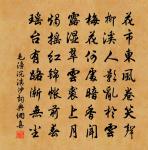 花市東風卷笑聲
柳溪人影亂於雲
梅花何處暗香聞
露濕翠雲裘上月
燭搖紅錦帳前春
瑤台有路漸無塵
毛滂浣溪沙詞典網